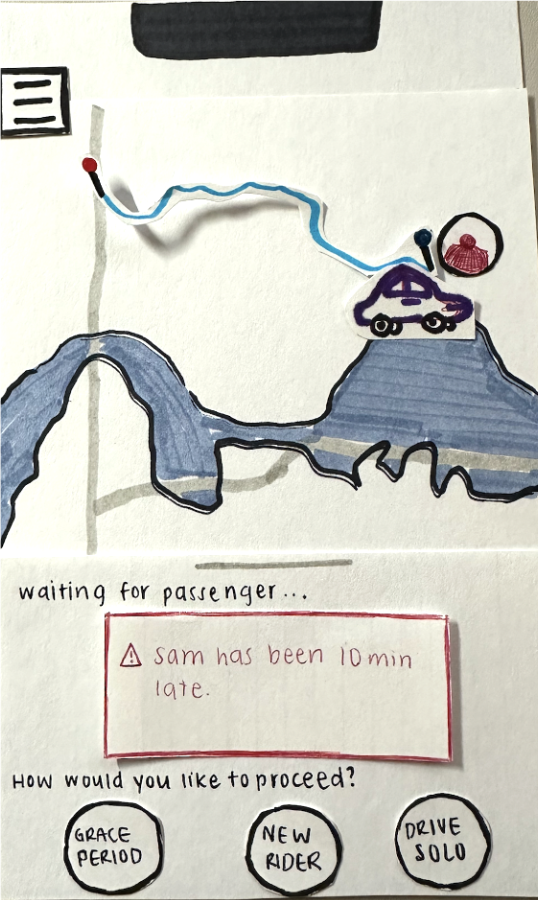 waiting for passenger...
⚠ sam has been 10 min
late.
How would you like to proceed?
GRACE
PERIOD
NEW
RIDER
DRIVE
SOLO